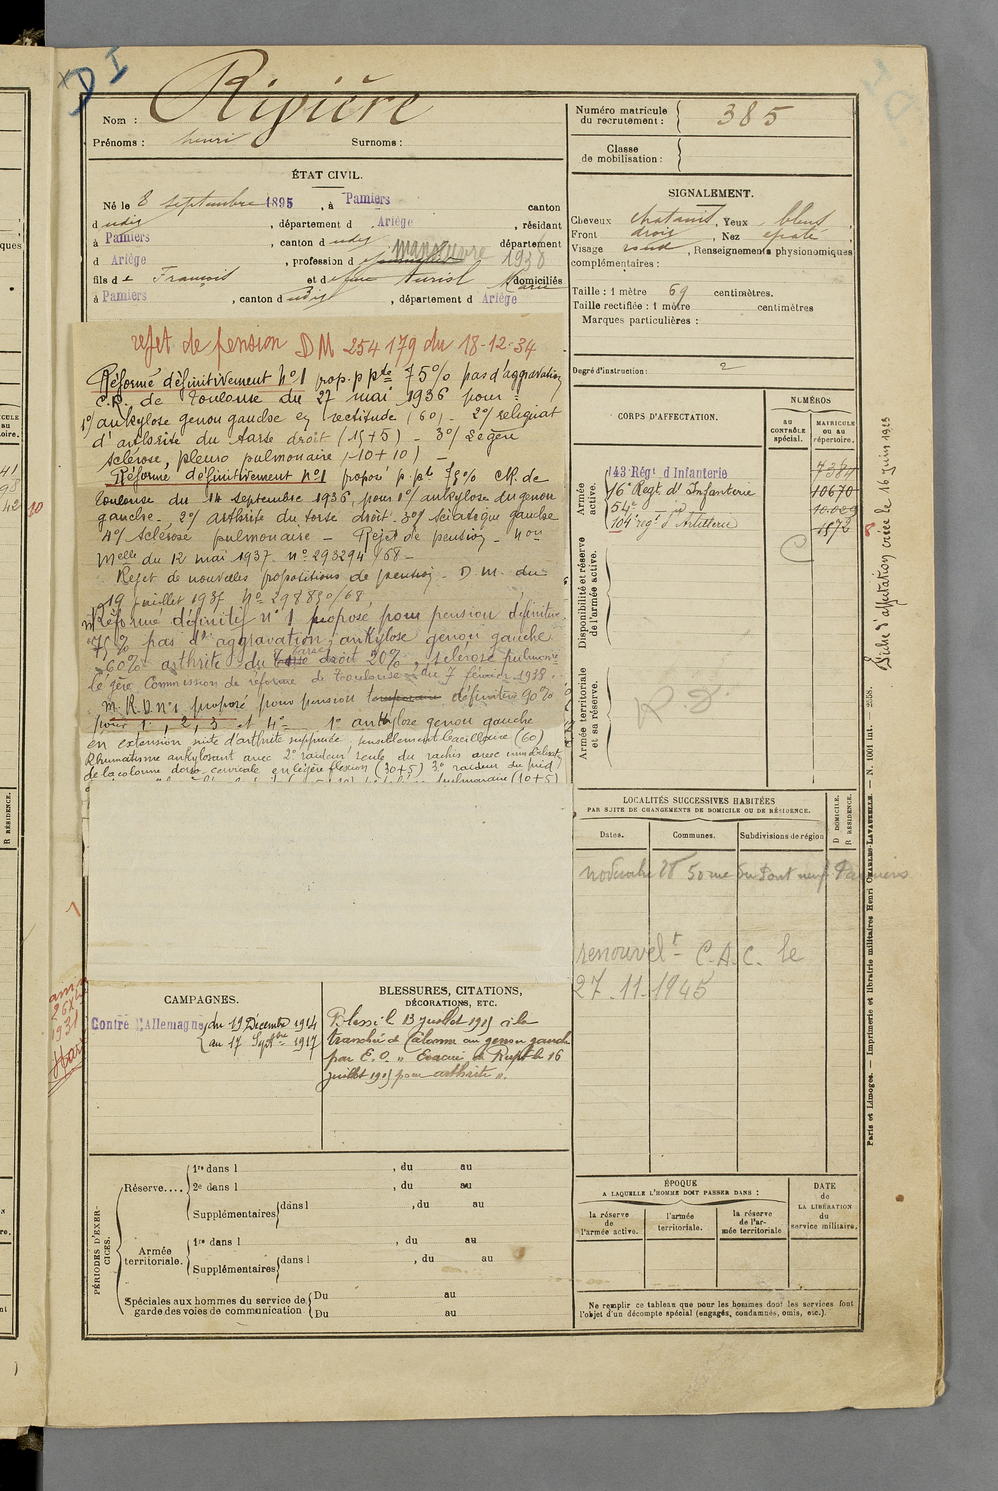 D I
Nom : Rivière
Prénoms : henri Surnoms :
ÉTAT CIVIL.
Né le 8 septembre 1895, à Pamiers canton
d udit, département d Ariège, résidant
à Pamiers, canton d udit manœuvre département
d Ariège, profession d 1938
fils de François et de Marie domiciliés
à Pamiers, canton d udit, département d Ariège
rejet de pension DM 254179 du 18-12-34
Réformé définitivement n°1 prop. p pte 75% pas d'aggravation
C.R. de Toulouse du 27 mai 1936 pour =
1°/ ankylose genou gauche en rectitude (60) - 2°/ reliquat
d'arthrite du tarse droit (15+5) - 3°/ Légère
sclérose, pleuro pulmonaire (10+10) -
Réformé définitivement n°1 proposé p. pte 75% CR. de
Toulouse du 14 septembre 1936, pour 1°/ ankylose du genou
gauche - 2°/ arthrite du tarse droit - 3°/ sciatique gauche
4°/ sclérose pulmonaire - Rejet de pension - non
Melle du 12 mai 1937 n° 293294/68 -
Rejet de nouvelles propositions de pension - D.M. du
19 juillet 1937 n° 298830/68,
Réforme définitif n° 1 proposé pour pension définitive
75% pas d' aggravation, ankylose genou gauche
60% arthrite du tarse droit 20%, sclérose pulmonre
légère Commission de réforme de Toulouse du 7 février 1938.
M. R.D n°1 proposé pour pension temporaire définitive 90%
pour 1, 2, 3 et 4° - 1° ankylose genou gauche
en extension suite d'arthrite suppurée, sensiblement bacillaire (60)
Rhumatisme ankylosant avec 2° raideur seule du rachis avec immobilisat
de la colonne dorso cervicale en légère flexion (30+5) 3° raideur du pied
pulmonaire (10+5)
CAMPAGNES.
Contre l'Allemagne du 19 Décembre 1914
au 17 Septbre 1917
BLESSURES, CITATIONS,
DÉCORATIONS, ETC.
Blessé le 13 juillet 1915 à la
tranchée de Calonne au genou gauche
par E. O. " Evacué de Rupt le 16
juillet 1915 pour arthrite ".
PÉRIODES D'EXERCICES.
Réserve....
1re dans l , du au
2e dans l , du au
Supplémentaires dans l , du au
Armée
territoriale.
1re dans l , du au
Supplémentaires dans l , du au
Spéciales aux hommes du service de
garde des voies de communication
Du au
Du au
Numéro matricule
du recrutement : 385
Classe
de mobilisation :
SIGNALEMENT.
Cheveux chatains, Yeux bleus,
Front droit, Nez épaté
Visage rond, Renseignements physionomiques
complémentaires :
Taille : 1 mètre 69 centimètres.
Taille rectifiée : 1 mètre centimètres
Marques particulières :
Degré d'instruction : 2
CORPS D'AFFECTATION.
NUMÉROS
au
CONTRÔLE
spécial.
MATRICULE
ou au
répertoire.
Armée
active.
143 Régt d'Infanterie 7384
16e Regt d'Infanterie 10670
54e 10.029
104e regt d'Artillerie 1572
Disponibilité et réserve
de l'armée active.
Armée territoriale
et sa réserve.
R.D.
Fiche d'affectation créée le 16 juin 1923
LOCALITÉS SUCCESSIVES HABITÉES
PAR SUITE DE CHANGEMENTS DE DOMICILE OU DE RÉSIDENCE.
Dates. Communes. Subdivisions de région
D DOMICILE.
R RÉSIDENCE.
novembre 28 50 rue du Pont neuf Pamiers
renouvelt - C.A.C. le
27-11-1945
ÉPOQUE
A LAQUELLE L'HOMME DOIT PASSER DANS :
la réserve
de
l'armée active.
l'armée
territoriale.
la réserve
de l'ar-
mée territoriale
DATE
de
LA LIBÉRATION
du
service militaire.
Ne remplir ce tableau que pour les hommes dont les services font
l'objet d'un décompte spécial (engagés, condamnés, omis, etc.).
Paris et Limoges. — Imprimerie et librairie militaires Henri CHARLES-LAVAUZELLE. — N. 1001 int. — 2558.
R RÉSIDENCE.
1931